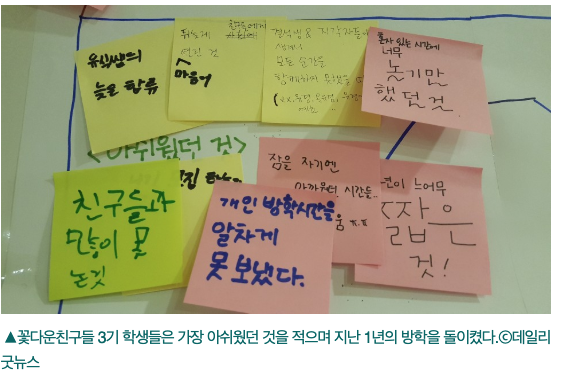 유식쌤의
늦은 합류
뒤늦게
연간 것
마음이
모든 순간들
함께하지 못했을
혼자 있는 시간에
너무
놀기만
했던 것
<아쉬웠던 것>
친구들과
많이 못
논것
개인 방학시간을
알차게
못 보냈다.
잠을 자기엔
아까웠던 시간들..
움 ㅠ.ㅠ
짧은
것!
▲꽃다운친구들 3기 학생들은 가장 아쉬웠던 것을 적으며 지난 1년의 방학을 돌이켰다.ⓒ데일리
굿뉴스